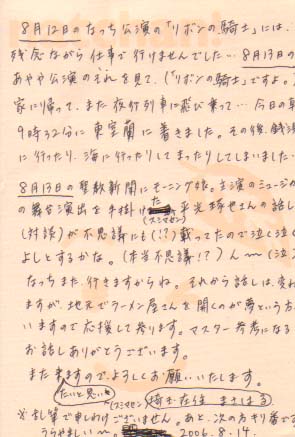 ８月12日のなっち公演の「リボンの騎士」には、
残念ながら仕事で行けませんでした…８月13日の
あやや公演のそれを見て、(「リボンの騎士」ですよ。)
家に帰って、また夜行列車に飛び乗って…今日の早
9時32分に東室蘭に着きました。その後、銭湯
に行ったり、海に行ったりしてまったりしてしまいました…
８月13日の聖教新聞にモーニング娘。主演のミュージカ
の舞台演出を手掛けた 平光琢也さんの話し
(スミマセン)
(対談)が不思議にも(!?)載ってたので泣く泣く
よしとするかな。(本当不思議!?)ん〜(泣)
なっちまた行きますからね。それから話しは、変わ
ますが、地元でラーメン屋さんを開くのが夢という方
いますので応援して参ります。マスター参考になる
お話しありがとうございます。
また来ますのでよろしくお願いいたします。
たいと思い (スミマセン) 埼玉在住 まさはる
※乱筆で申しわけございません。あと、次の方キリ番です
うらやましい〜。 2006.8.14.